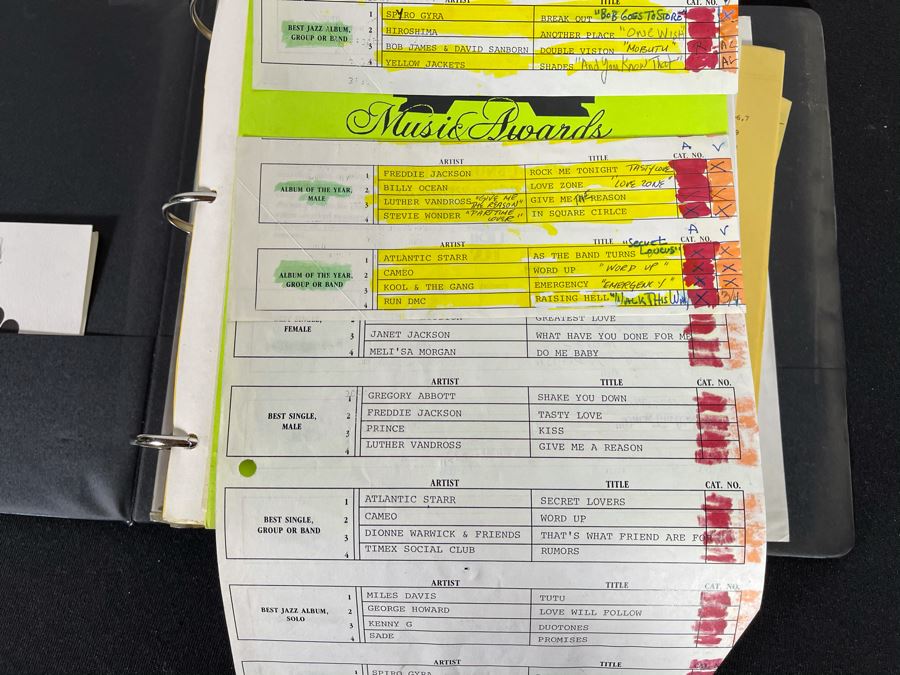 ARTIST TITLE CAT. NO.
BEST JAZZ ALBUM, GROUP OR BAND
1 SPYRO GYRA BREAK OUT "BOB GOES TO STORE" X
2 HIROSHIMA ANOTHER PLACE "ONE WISH
3 BOB JAMES & DAVID SANBORN DOUBLE VISION "MOBUTU"
4 YELLOW JACKETS SHADES "And You Know That"
Music Awards
A V
ARTIST TITLE CAT. NO.
ALBUM OF THE YEAR, MALE
1 FREDDIE JACKSON ROCK ME TONIGHT TASTY LOVE X
2 BILLY OCEAN LOVE ZONE "LOVE ZONE
3 LUTHER VANDROSS "GIVE ME THE REASON" GIVE ME THE REASON X
4 STEVIE WONDER "PARTTIME LOVER" IN SQUARE CIRLCE X X
A V
ARTIST TITLE CAT. NO.
ALBUM OF THE YEAR, GROUP OR BAND
1 ATLANTIC STARR AS THE BAND TURNS "Secret LOVERS" X X
2 CAMEO WORD UP "WORD UP" X X
3 KOOL & THE GANG EMERGENCY "EMERGENCY" X X
4 RUN DMC RAISING HELL "WALK THIS WAY X 3/4
FEMALE
GREATEST LOVE
3 JANET JACKSON WHAT HAVE YOU DONE FOR ME
4 MELI'SA MORGAN DO ME BABY
ARTIST TITLE CAT. NO.
BEST SINGLE, MALE
1 GREGORY ABBOTT SHAKE YOU DOWN
2 FREDDIE JACKSON TASTY LOVE
3 PRINCE KISS
4 LUTHER VANDROSS GIVE ME A REASON
ARTIST TITLE CAT. NO.
BEST SINGLE, GROUP OR BAND
1 ATLANTIC STARR SECRET LOVERS
2 CAMEO WORD UP
3 DIONNE WARWICK & FRIENDS THAT'S WHAT FRIEND ARE FOR
4 TIMEX SOCIAL CLUB RUMORS
ARTIST TITLE CAT. NO.
BEST JAZZ ALBUM, SOLO
1 MILES DAVIS TUTU
2 GEORGE HOWARD LOVE WILL FOLLOW
3 KENNY G DUOTONES
4 SADE PROMISES
ARTIST TITLE CAT. NO.
1 SPIRO GYRA